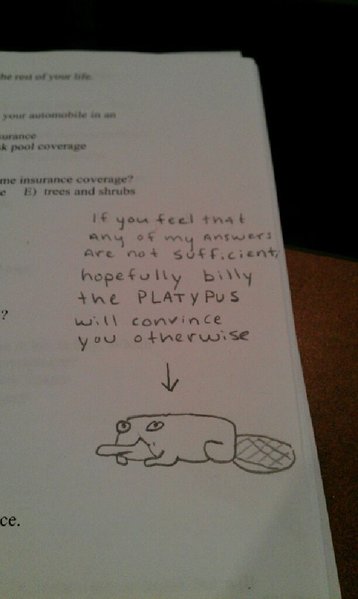 the rest of your life.
your automobile in an
surance
k pool coverage
me insurance coverage?
e E) trees and shrubs
If you feel that
any of my answers
are not sufficient,
hopefully billy
the PLATYPUS
will convince
you otherwise
?
ce.